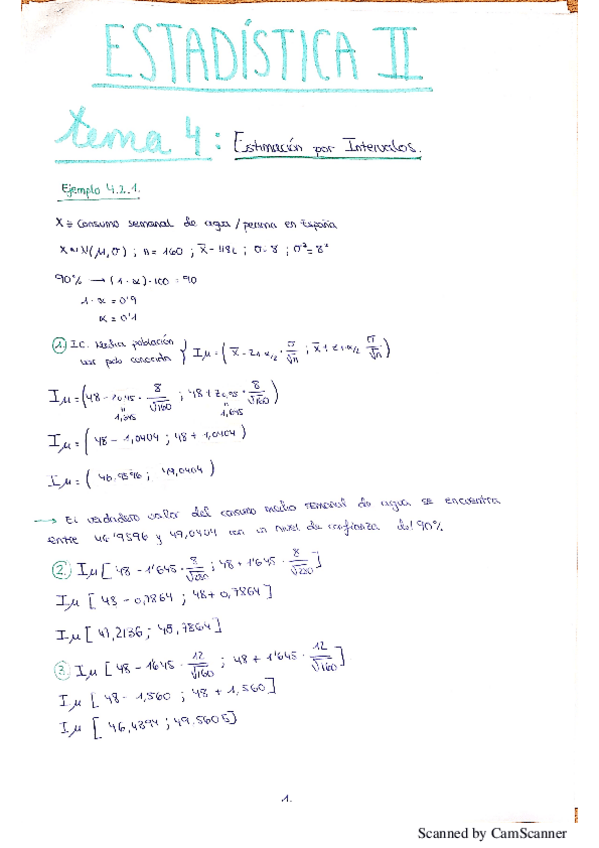 ESTADÍSTICA II
tema 4: Estimación por Intervalos.
Ejemplo 4.2.1.
X ≡ Consumo semanal de agua / persona en España
X ~ N(μ, σ) ; n = 160 ; x̄ = 48L ; σ = 8 ; σ² = 8²
90% → (1-α)·100 = 90
1-α = 0'9
α = 0'1
① I.C. Media población } Iμ = (x̄ - z1-α/2 · σ/√n ; x̄ + z1-α/2 σ/√n)
var pob conocida
Iμ = (48 - 1'645 · 8/√160 ; 48 + z0,95 · 8/√160)
1,645 1,645
Iμ = (48 - 1,0404 ; 48 + 1,0404)
Iμ = (46,9596 ; 49,0404)
→ El verdadero valor del consumo medio semanal de agua se encuentra
entre 46'9596 y 49,0404 con un nivel de confianza del 90%.
② Iμ [48 - 1'645 · 8/√280 ; 48 + 1'645 · 8/√280]
Iμ [48 - 0,7864 ; 48 + 0,7864]
Iμ [47,2136 ; 48,7864]
③ Iμ [48 - 1'645 · 12/√160 ; 48 + 1'645 · 12/√160]
Iμ [48 - 1,560 ; 48 + 1,560]
Iμ [46,4394 ; 49.5605]
1.
Scanned by CamScanner